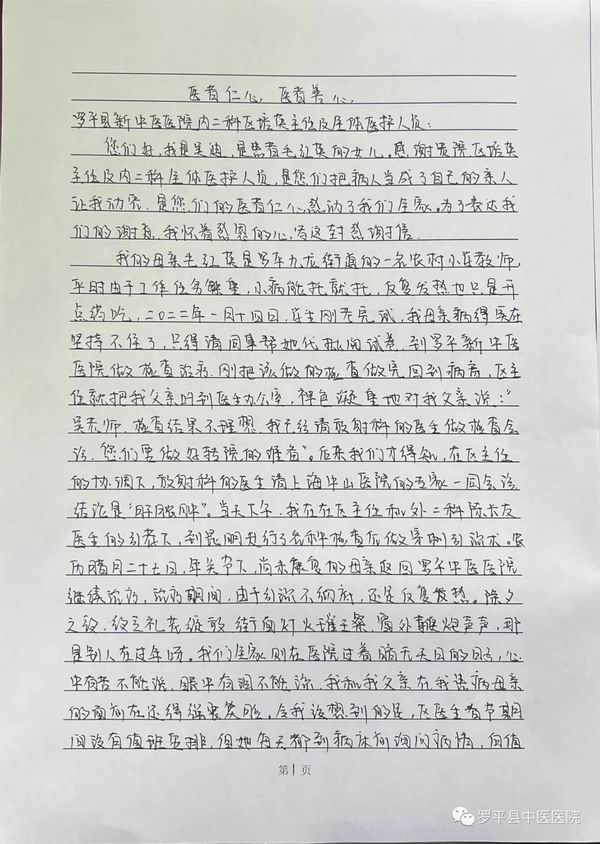 医者仁心，医者善心，
罗平县新中医医院内二科区桂英主位及全体医护人员：
您们好，我是吴迪，是患者毛红英的女儿。感谢贵院区桂英
主位及内二科全体医护人员，是您们把病人当成了自己的亲人
让我动容，是您们的医者仁心感动了我们全家。为了表达我
们的谢意，我怀着感恩的心，写这封感谢信。
我的母亲毛红英是罗平九龙街道的一名农村小学教师，
平时由于工作任务繁重，小病能托就托，反复发热也只是开
点药吃，二0二二年一月十四日，学生刚考完试，我母亲病得实在
坚持不住了，只得请同事帮她代批阅试卷，到罗平新中医
医院做检查治病，刚把该做的检查做完回到病房，区主
位就把我父亲叫到医生办公室，神色凝重地对我父亲说：“
吴老师，检查结果不理想，我已经请放射科的医生做检查会
诊，您们要做好转院的准备”。后来我们才得知，在区主位
的协调下，放射科的医生请上海华山医院的专家一同会诊
结论是“肝脓肿”。当天下午，我在在区主位和外二科陈
医生的引荐下，到昆明进行了各种检查后做穿刺引流术。农
历腊月二十七日，年关节下，尚未康复的母亲返回罗平中医医院
继续治病，治病期间，由于引流不彻底，还是反复发热。除夕
之夜，夜空礼花绽放，街面灯火璀璨，窗外鞭炮声声，那
是别人在过年呀。我们全家则在医院过着暗无天日的日子，心
中有苦不能说，眼中有泪不能流，我和我父亲在我患病母亲
的面前在还得强装笑脸。令我没想到的是，区医生春节期
间没有值班安排，但她每天都到病床前询问病情，向值
第1页
罗平县中医医院